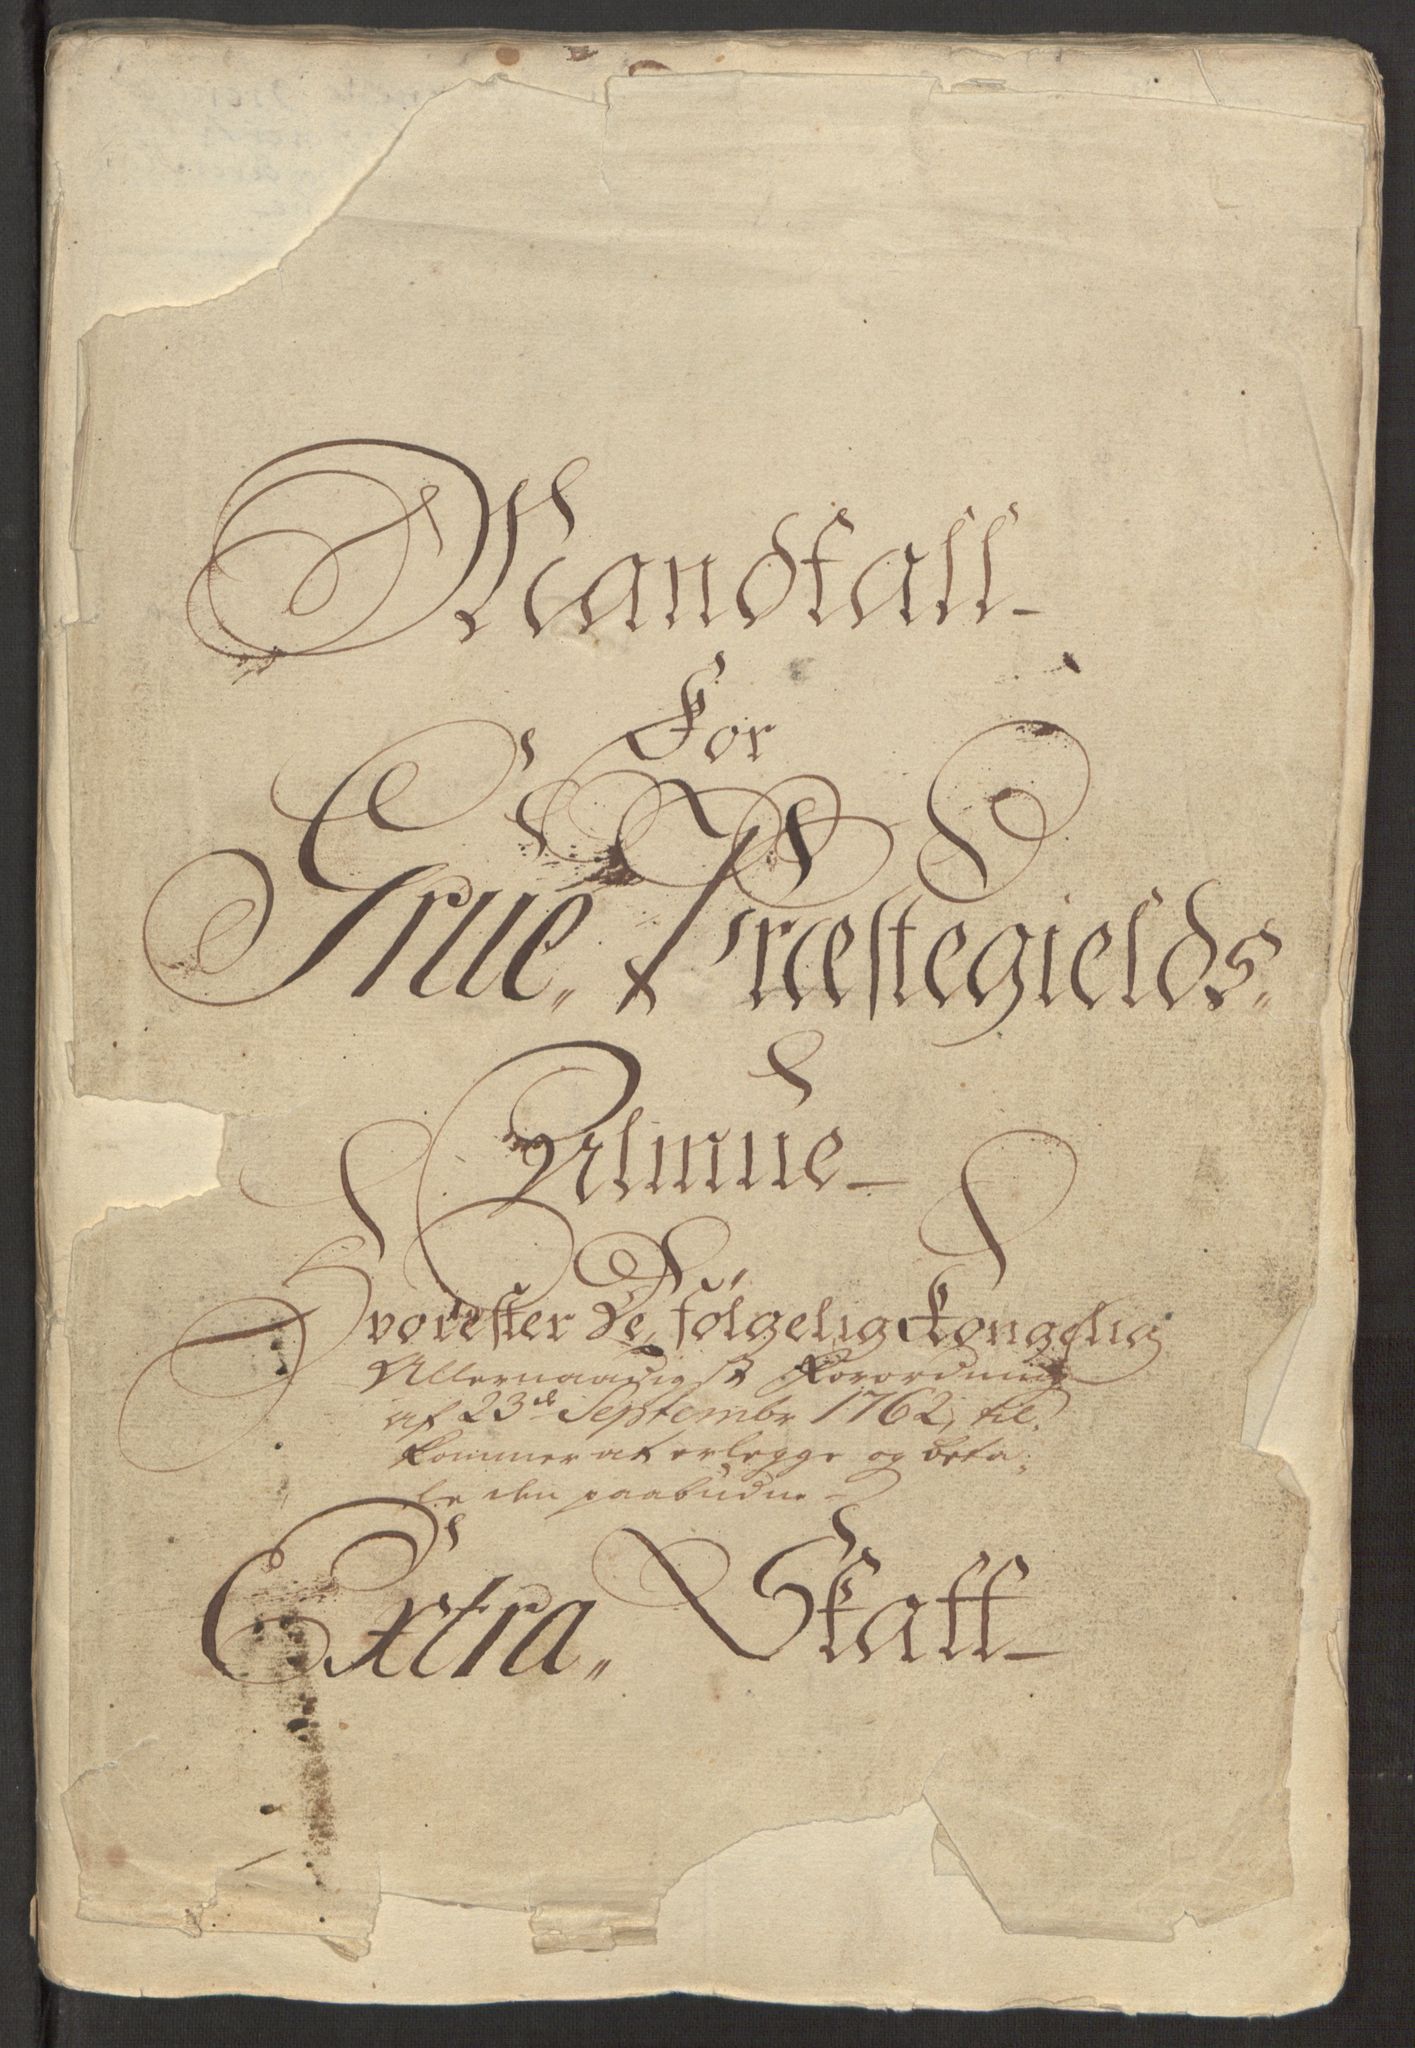 Mandtall
For
Grue„ Præstegields„
Almue
Hvorefter De, følgelig Kongelig
Allernaadigst Forordning
af 23de Septembr 1762, til„
kommer at erlegge og beta„
le den paabudne
Extra„ Skatt